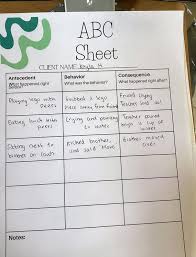 ABC
Sheet
CLIENT NAME: Kayla M
Antecedent
What happened right before?
Behavior
What was the behavior?
Consequence
What happened right after?
Playing lego with
peers
Grabbed a lego
piece away from friend
Friend crying
Teacher said
Eating lunch with
peers
Crying and pointing
to water
Teacher poured
a cup of
water
Sitting next to
brother on couch
Kicked brother
and said "Move"
Brother moved
over
Notes: